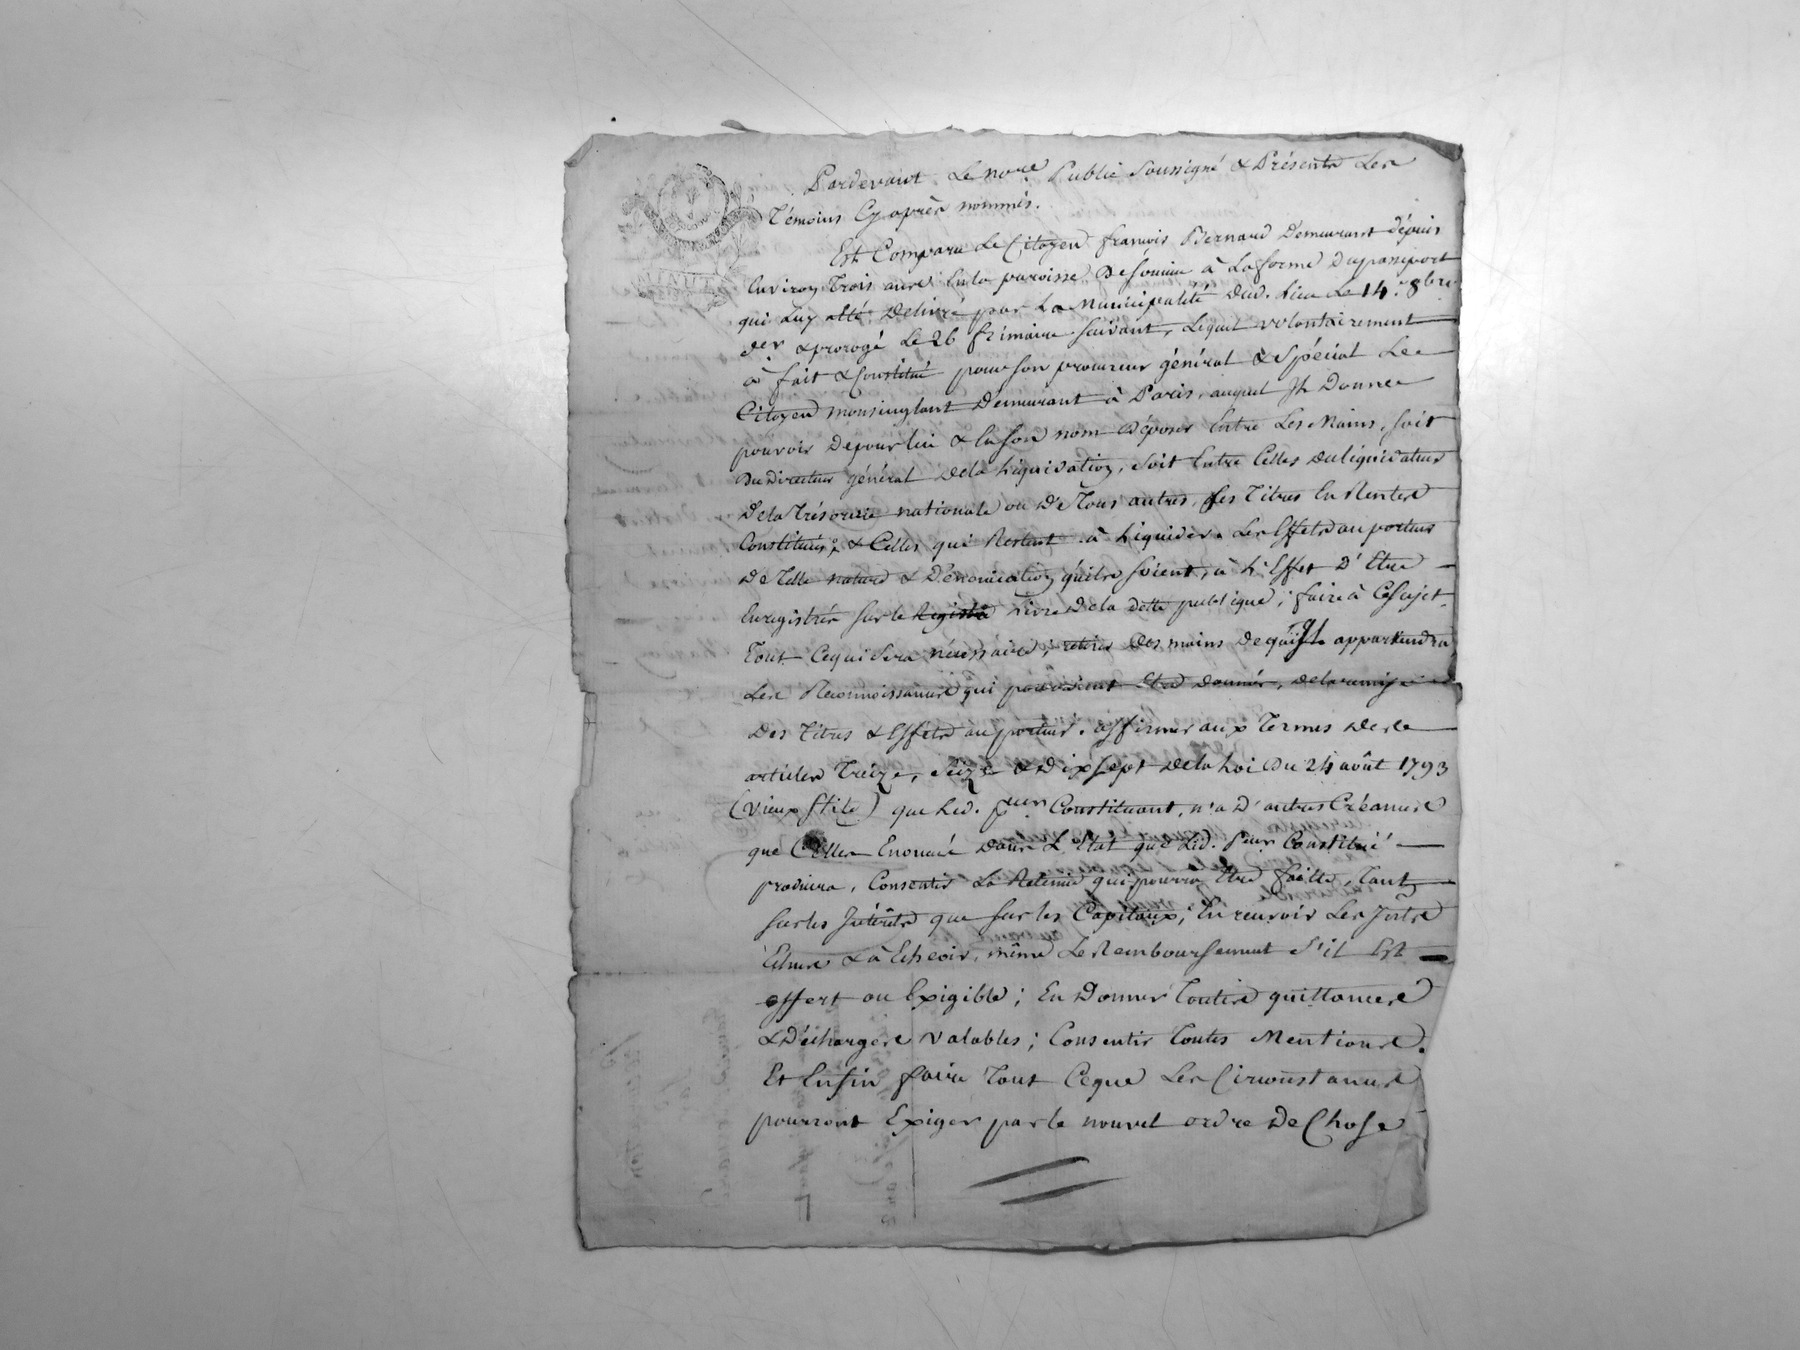 Pardevant Le no.re Public Soussigné & Présents Les
Témoins Cy après nommés.
Est Comparu Le Citoyen françois Bernard Demeurant dépuis
Environ Trois ans En la paroisse De à La forme Du passeport
qui Luy a été Delivré par La Municipalité Dud. Lieu Le 14.e 8bre
der & prorogé Le 26 frimaire suivant, Lequel volontairement
a fait & Constitué pour son procureur général & Spécial Le
Citoyen Demeurant à Paris, auquel Il Donne
pouvoir De pour lui & En son nom Déposer Entre Les Mains, soit
Du Directeur général De la Liquidation, soit Entre Celles Du liquidateur
De la Trésorerie nationale ou De Tous autres, ses Titres En Rentes
Constituées & Celles qui Restent à Liquider. Les Effets au porteur
De Telle nature & Dénomination qu'ils soient, à L'Effet D'Etre
Enregistrés sur le Registre Livre De la Dette publique; faire à Ce sujet
Tout Ce qui sera nécessaire; retirer Des mains De qui Il appartiendra
Les Reconnoissances qui pourroient Etre Données, De la remise
Des Titres & Effets au porteur. affirmer aux Termes Des
articles Treize, Seize & Dix sept De la Loi Du 24 août 1793
(vieux stile) que Led. sieur Constituant, n'a D'autres Créances
que Celles Enoncées Dans L'Etat que Led. sieur Constitué
produira, Consentir La Retenue qui pourra Etre faitte, Tant
sur les Intérêts que sur les Capitaux; En recevoir Les Intérêts
Echus & à Echeoir, même Le Remboursement s'il Est
offert ou Exigible; En Donner Toutes quittances
& Décharges valables; Consentir Toutes Mentions.
Et Enfin faire Tout Ce que Les Circonstances
pourront Exiger par le nouvel ordre De Chose